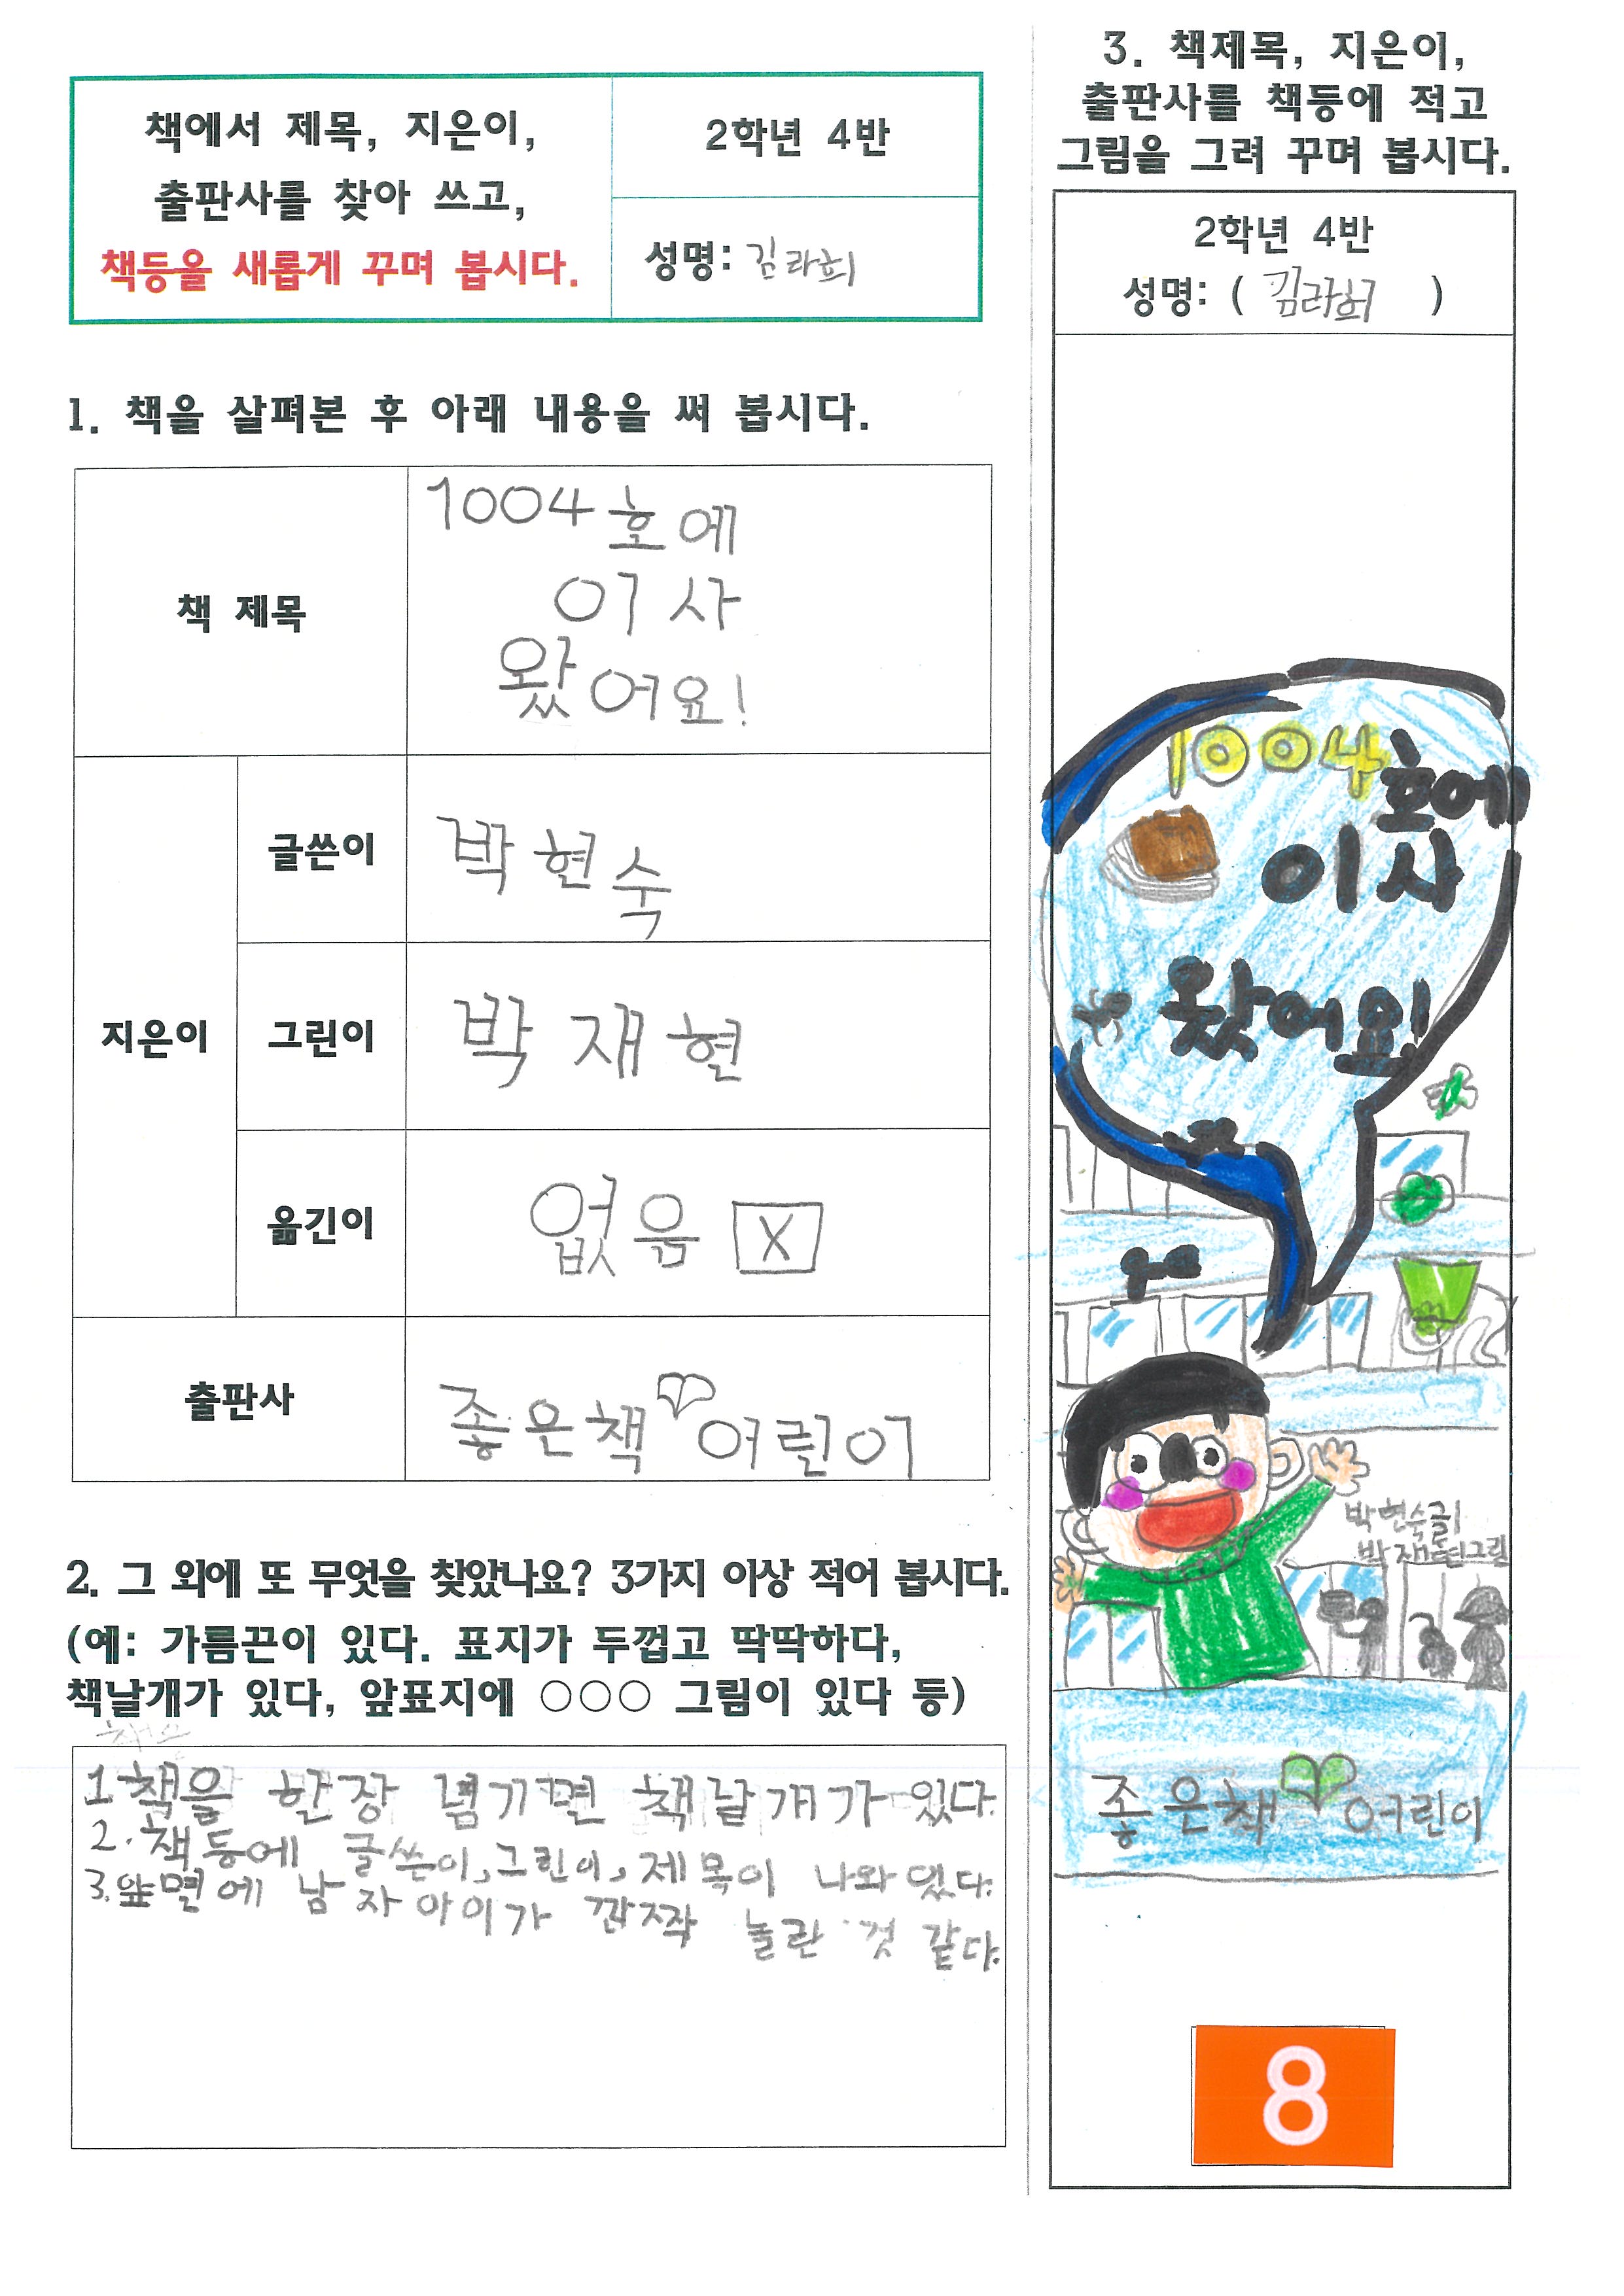 책에서 제목, 지은이,
출판사를 찾아 쓰고,
책등을 새롭게 꾸며 봅시다.
2학년 4반
성명: 김라희
1. 책을 살펴본 후 아래 내용을 써 봅시다.
책 제목
1004호에
이사
왔어요!
지은이
글쓴이
박현숙
그린이
박재현
옮긴이
없음 X
출판사
좋은책어린이
2. 그 외에 또 무엇을 찾았나요? 3가지 이상 적어 봅시다.
(예: 가름끈이 있다. 표지가 두껍고 딱딱하다,
책날개가 있다, 앞표지에 ○○○ 그림이 있다 등)
1 책을 한장 넘기면 책날개가 있다.
2. 책등에 글쓴이, 그린이, 제목이 나와 있다.
3. 앞면에 남자아이가 깜짝 놀란 것 같다.
3. 책제목, 지은이,
출판사를 책등에 적고
그림을 그려 꾸며 봅시다.
2학년 4반
성명: ( 김라희 )
1004호에
이사
왔어요!
박현숙글
박재현그림
좋은책어린이
8